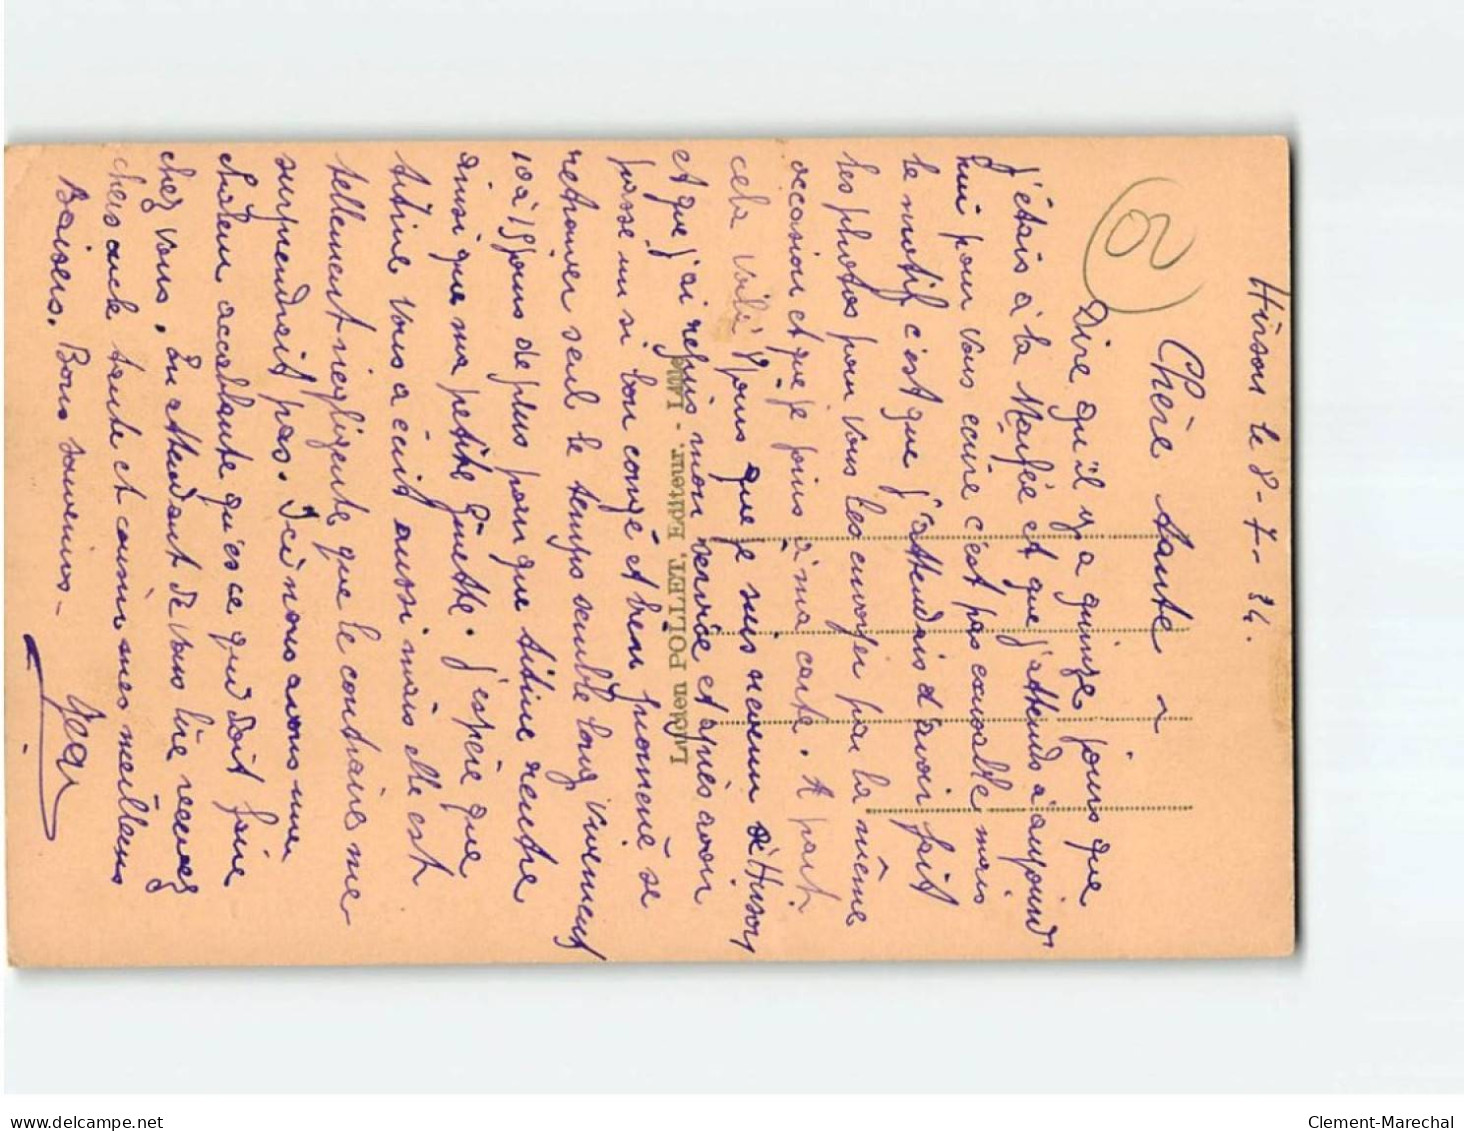 Hirson le 8-7-34.
Chère tante
Dire qu'il y a quinze jours que
j'étais à la Marfée et que j'attends aujourd'
hui pour vous ecrire c'est pas causable mais
le motif c'est que j'attendais d'avoir fait
les photos pour vous les envoyer par la même
occasion et que je joins à ma carte. A part
cela voilà 8 jours que je suis revenu d'Hirson
et que j'ai repris mon service et après avoir
passé un si bon congé et bien promené se
retrouver seul le temps semble long vivement
10 à 15 jours de plus pour que titine rentre
ainsi que ma petite Ginette. J'espère que
titine vous a écrit aussi mais elle est
tellement negligente que le contraire me
surprendrait pas. Ici nous avons une
chaleur accablante qu'es ce que doit faire
chez vous. En attendant de vous lire recevez
chers oncle tante et cousin mes meilleurs
Baisers. Bons souvenirs-
Jean
02
Lucien POLLET, Editeur. - Lille
delcampe.net
Clement-Marechal